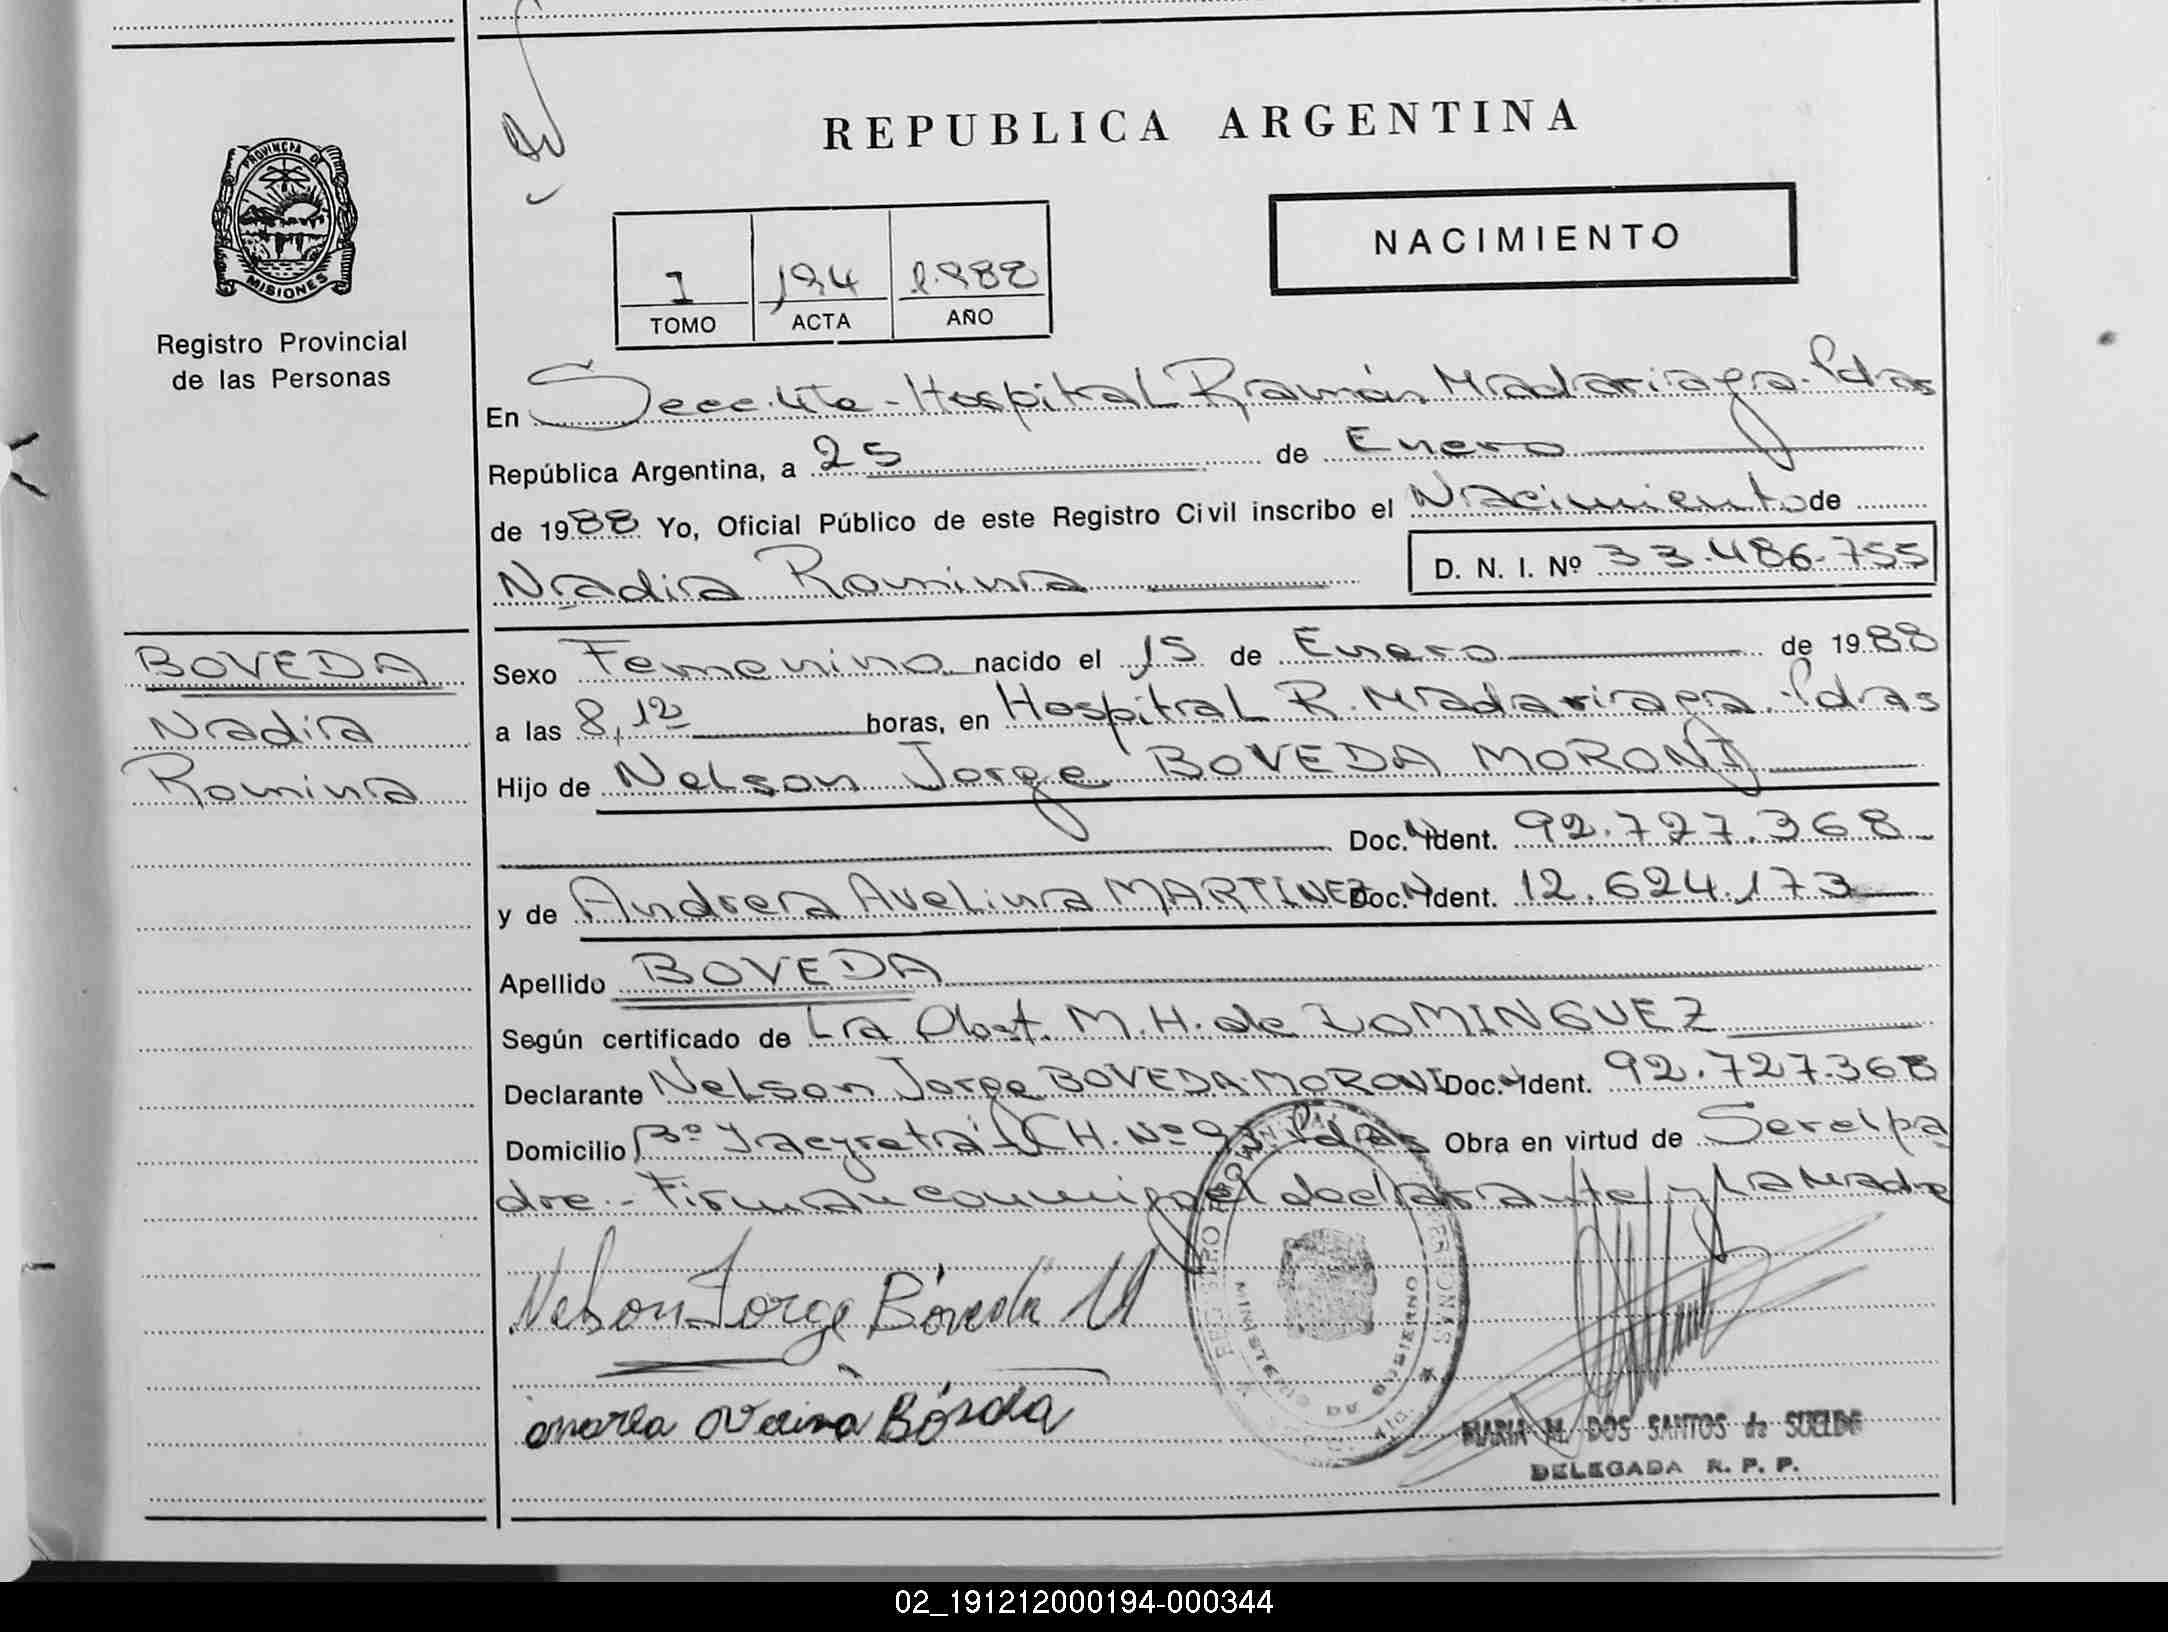 REPUBLICA ARGENTINA
PROVINCIA DE
MISIONES
Registro Provincial
de las Personas
NACIMIENTO
1 194 1.988
TOMO ACTA AÑO
En Secc. 4ta - Hospital Ramón Madariaga - Pdas
República Argentina, a 25 de Enero
de 1988 Yo, Oficial Público de este Registro Civil inscribo el Nacimiento de
Nadia Romina D. N. I. Nº 33.486.755
BOVEDA
Nadia
Romina
Sexo Femenino nacido el 15 de Enero de 1988
a las 8,12 horas, en Hospital R. Madariaga - Pdas
Hijo de Nelson Jorge BOVEDA MORONI
Doc. Ident. 92.727.368
y de Andrea Avelina MARTINEZ Doc. Ident. 12.624.173
Apellido BOVEDA
Según certificado de La Obst. M. H. de DOMINGUEZ
Declarante Nelson Jorge BOVEDA MORONI Doc. Ident. 92.727.368
Domicilio Bº Yacyretá CH. Nº Pdas Obra en virtud de Ser el pa
dre - Firman conmigo el declarante y la Madre
Nelson Jorge Bóveda M
Bóveda
REGISTRO PROVINCIAL PERSONAS
MINISTERIO DE GOBIERNO
MARIA M. DOS SANTOS de SUELDE
DELEGADA R. P. P.
02_191212000194-000344